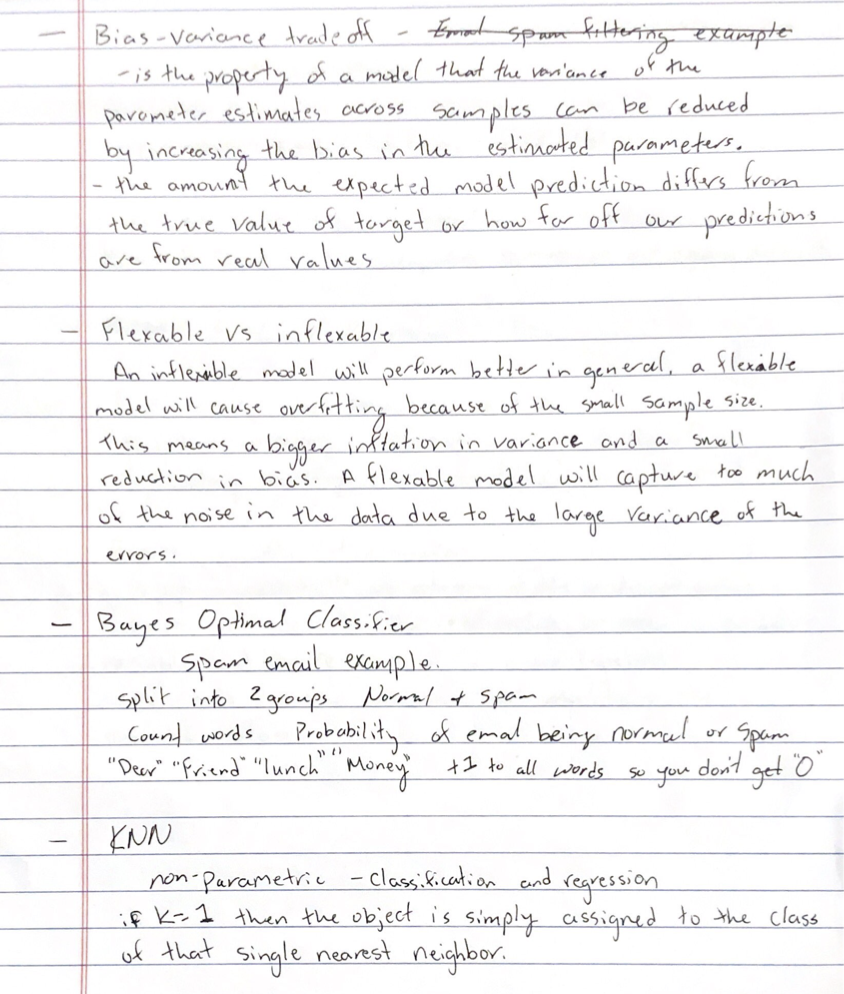 — Bias-variance tradeoff - Emal spam filtering example
- is the property of a model that the variance of the
parameter estimates across samples can be reduced
by increasing the bias in the estimated parameters.
- the amount the expected model prediction differs from
the true value of target or how far off our predictions
are from real values
— Flexable vs inflexable
An inflexible model will perform better in general, a flexable
model will cause overfitting because of the small sample size.
This means a bigger inflation in variance and a small
reduction in bias. A flexable model will capture too much
of the noise in the data due to the large variance of the
errors.
— Bayes Optimal Classifier
spam email example.
split into 2 groups Normal + spam
Count words Probability of emal being normal or spam
"Dear" "Friend" "lunch" "Money" +1 to all words so you don't get "0"
— KNN
non-parametric - classification and regression
if K=1 then the object is simply assigned to the class
of that single nearest neighbor.